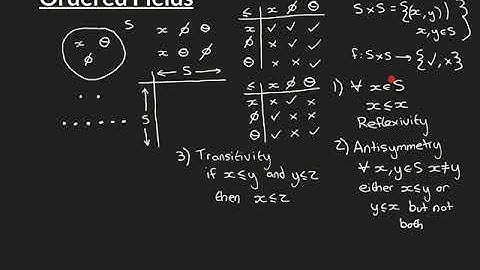 Ordered Fields
S
x ϕ Θ
x Θ ϕ
x Θ
ϕ
← S →
↑
S
↓
≤ x ϕ Θ
x ✓ ✓ ✓
ϕ x ✓ ✓
Θ x x ✓
≤ x ϕ Θ
x x ✓ x
ϕ ✓ x x
Θ ✓ x ✓
S×S = {(x,y))
x,y∈S }
f: S×S → {✓, x}
1) ∀ x∈S
x≤x
Reflexivity
2) Antisymmetry
∀ x,y∈S x≠y
either x≤y or
y≤x but not
both
3) Transitivity
if x≤y and y≤z
then x≤z